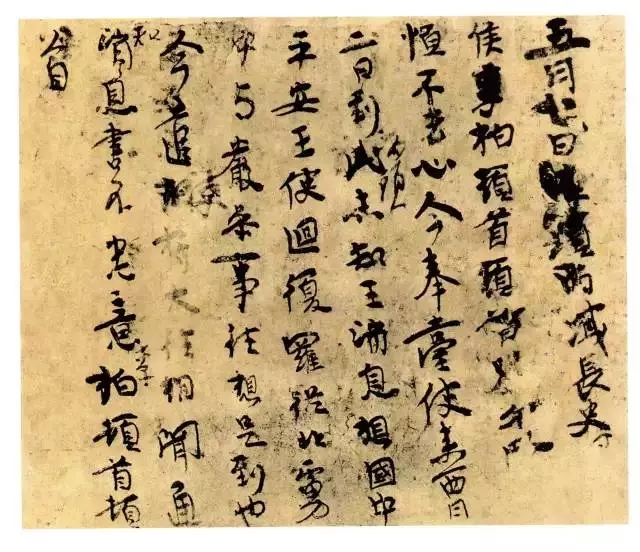 五月七日西域長史
侯李柏頓首頓首別
恒不去心今奉臺使來西月
二日到此海頭未知王消息想國中
平安王使迴復羅從北虜
中与嚴參事往想是到也
今遣使符大往相聞通
知消息書不悉意李柏頓首頓
首